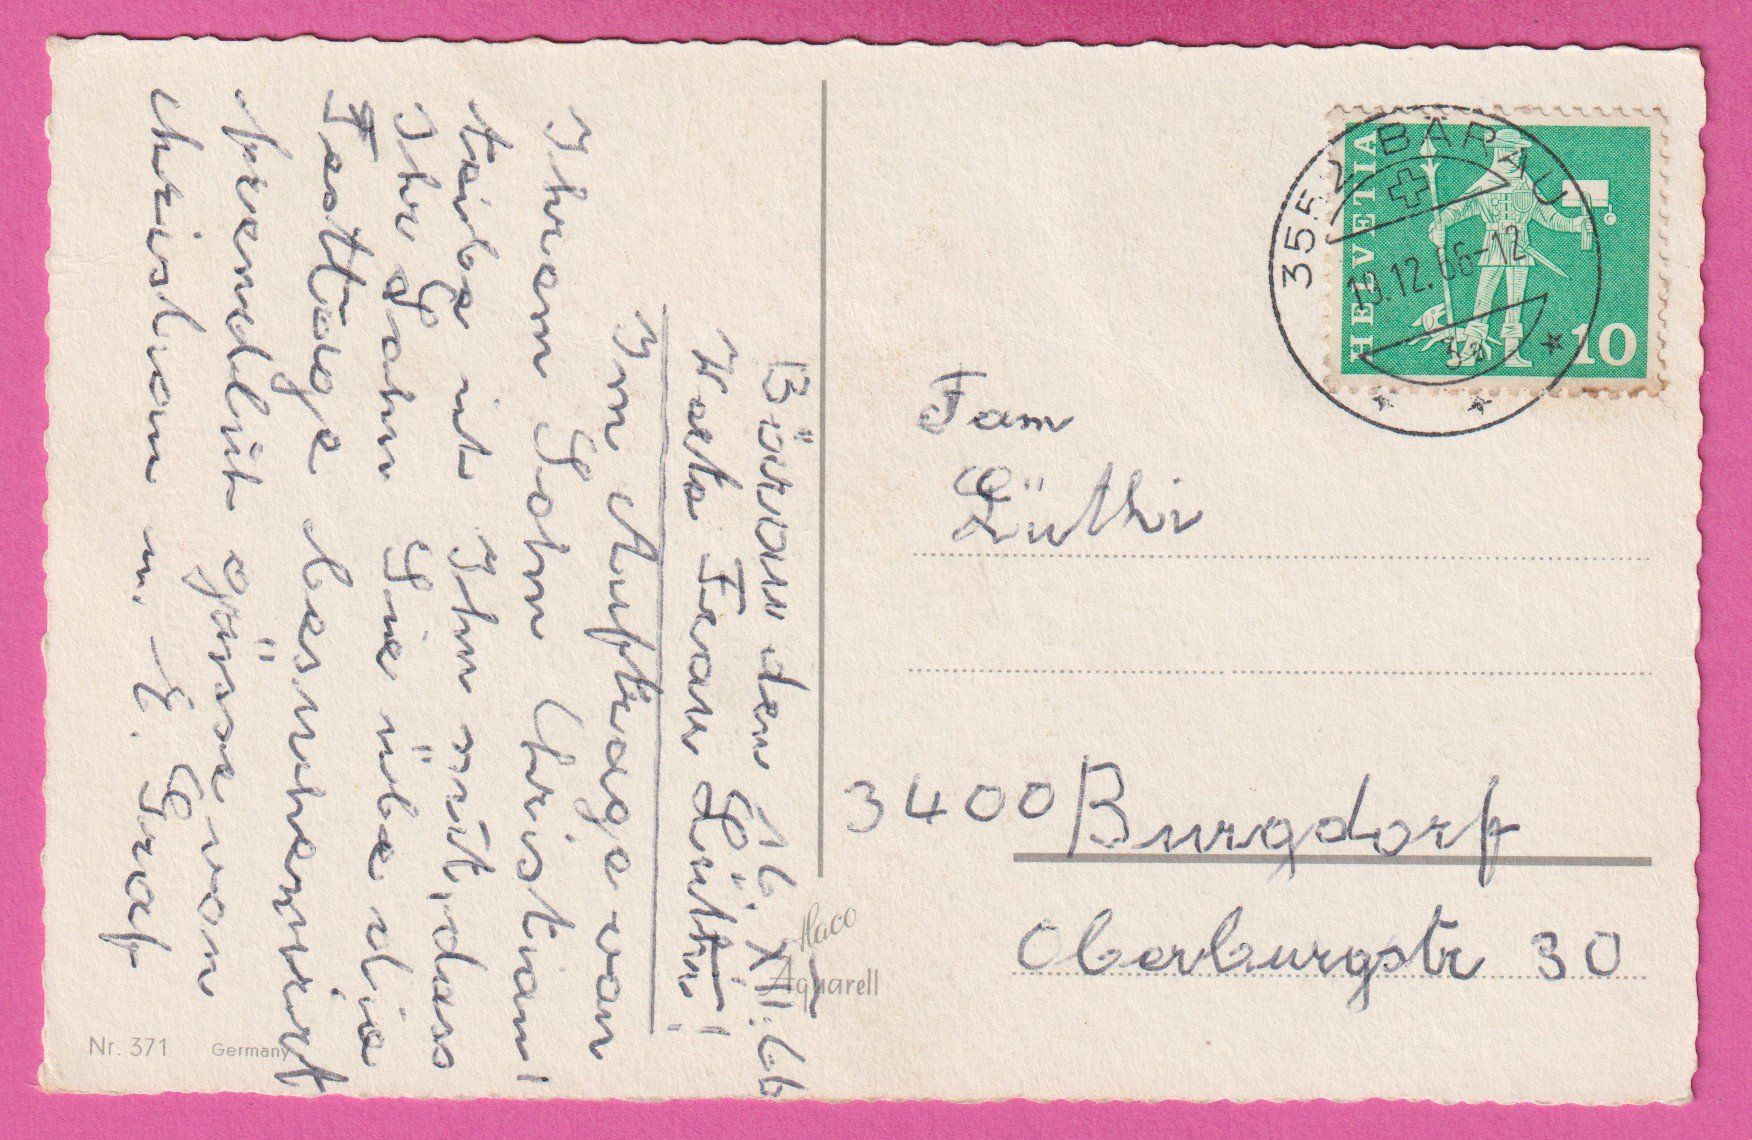 Bärau den 16. XII. 66
Werte Frau Lüthi!
Im Auftrage von
Ihrem Sohn Christian!
teile ich Ihn mit, dass
Ihr Sohn Sie übe die
Festtage besuchen wird
freundlich grüsse von
christian u. E. Graf
Nr. 371 Germany
Haco
Aquarell
HELVETIA
10
3552 BÄRAU
12.66-12
Fam
Lüthi
3400 Burgdorf
Oberburgstr 30